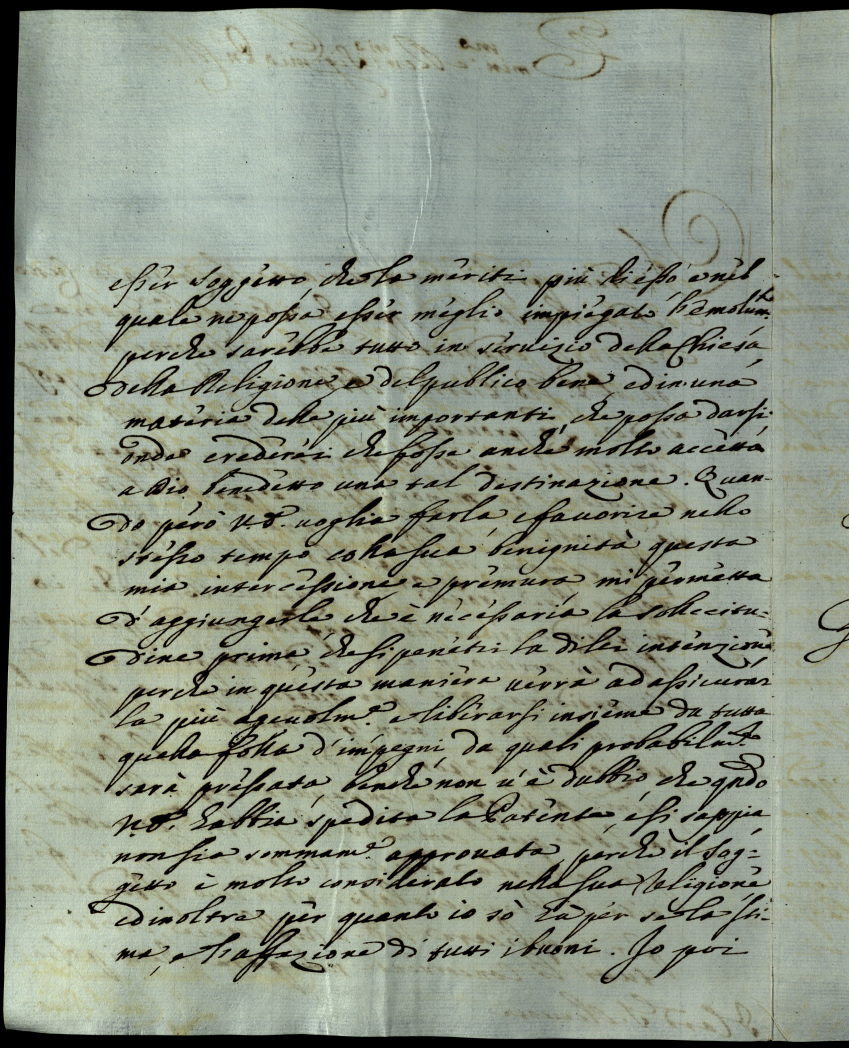 esser soggetto, che la meriti più di esso, e nel
quale ne possa esser meglio impiegato l'emolum.to
perche sarebbe tutto in servizio della Chiesa,
della Religione, e del publico bene, ed in una
materia delle più importanti, che possa darsi,
onde crederei che fosse anche molto accetta
a Dio benedetto una tal destinazione. Quan-
do però V.S. voglia farla, e favorire nello
stesso tempo colla sua benignità questa
mia intercessione e premura, mi permetta
d'aggiungerle che è necessaria la sollecitu-
dine prima che si penetri la di lei intenzione
perche in questa maniera verrà ad assicurar
la più agevolm.e e liberarsi insieme da tutta
quella folla d'impegni, da quali probabilm.te
sarà pressata, benche non v'è dubbio, che qndo
V.S. habbia spedita la Patente, e si sappia,
non sia sommam.e approvata, perche il sog-
getto è molto considerato nella sua Religione,
ed inoltre per quanto io sò hà per se la sti-
ma, e l'affezione di tutti i buoni. Io poi